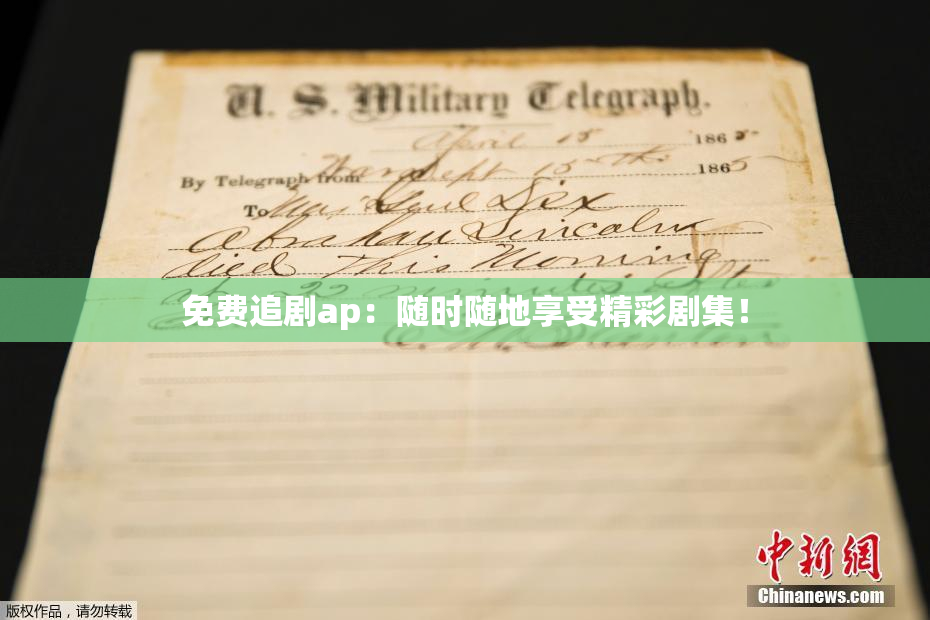 U. S. Military Telegraph.
April 15 1865
By Telegraph from War Dept 15th 1865
To Maj Genl Dix
Abraham Lincoln
died This Morning
at 22 minutes after
免费追剧ap：随时随地享受精彩剧集！
E. M. Stanton
中新网
Chinanews.com
版权作品，请勿转载